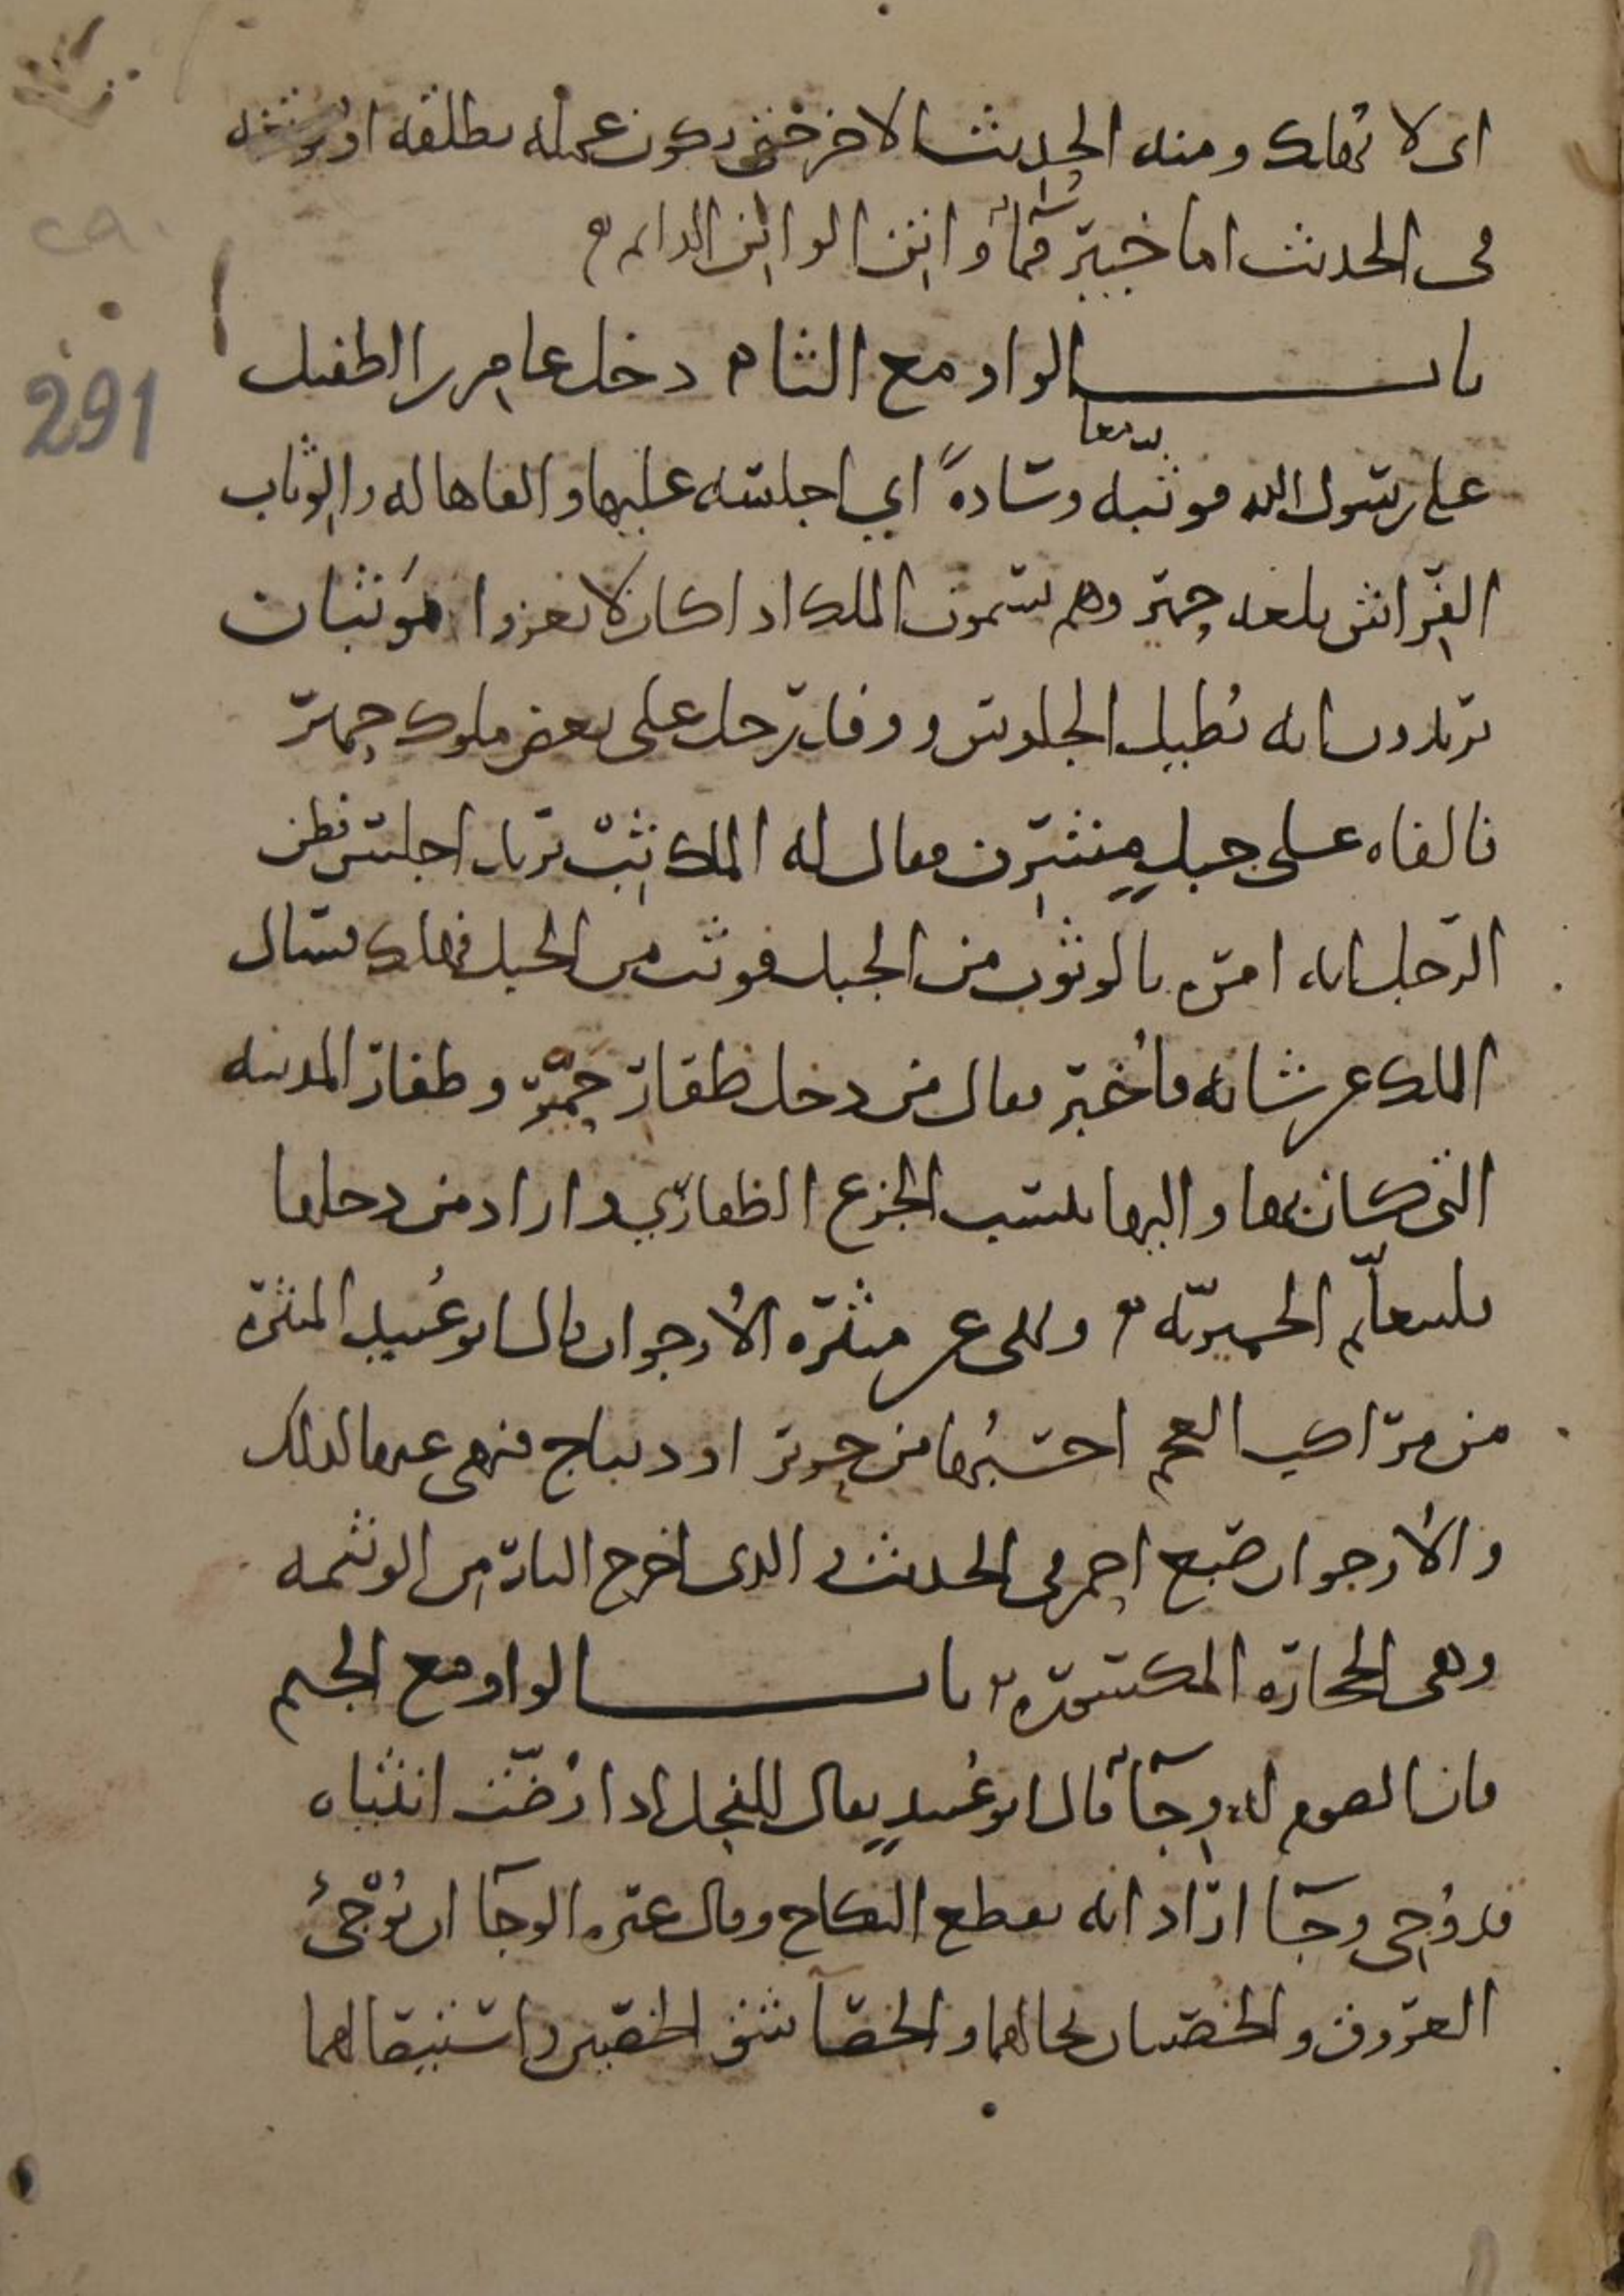 اى لا يهلك ومنه الحديث الاخر حتى يكون عمله يطلقه او يوتغه
فى الحديث اما خيبر فماء واتن الواتن الدايم
باب الواو مع الثاء دخل عامر بن الطفيل
على رسول الله فوثبه وسادة اي اجلسه عليها والقاها له والوثاب
الفراش بلغه حمير وهم يسمون الملك اذا كان لا يغزوا موثبان
يريدون انه يطيل الجلوس ووفد رجل على بعض ملوك حمير
فالفاه على جبل مشرف فقال له الملك ثب يريد اجلس فظن
الرجل انه امره بالوثوب من الجبل فوثب من الجبل فهلك فسال
الملك عن شانه فاخبر فقال من دخل ظفار حمر وظفار المدينه
التى كان بها واليها ينسب الجزع الظفاري واراد من دخلها
فليتعلم الحميريه ونهى عن ميثرة الارجوان قال ابو عبيد الميثرة
من مراكب العجم احسبها من حرير او ديباج فنهى عنها لذلك
والارجوان صبغ احمر فى الحديث الذى اخرج النار من الوثيمه
وهى الحجاره المكسوره باب الواو مع الجيم
فان الصوم له وجاء قال ابو عبيد يقال للفحل اذا رضت انثياه
قد وجى وجاء اراد انه يقطع النكاح وقال غيره الوجا ان توجئ
العروق والخصيتان بحالهما والخصاء شق الخصيين واستيصالهما
ca.
291